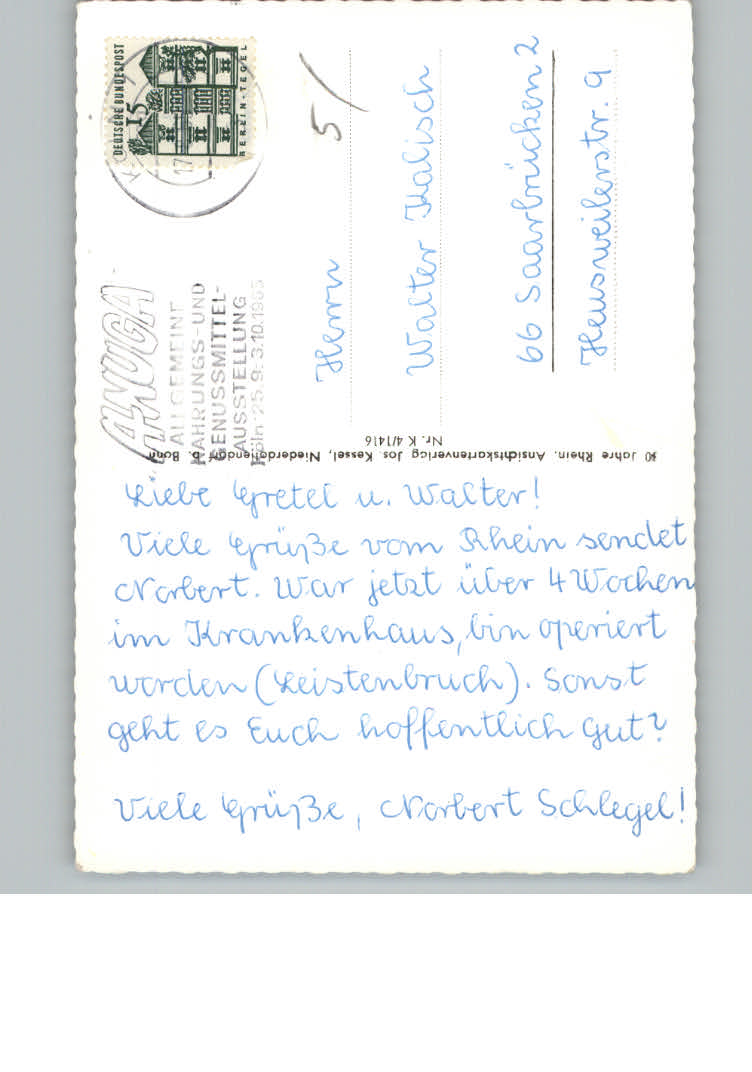 Liebe Gretel u. Walter!
Viele Grüße vom Rhein sendet
Norbert. War jetzt über 4 Wochen
im Krankenhaus, bin operiert
worden (Leistenbruch). Sonst
geht es Euch hoffentlich gut?
Viele Grüße, Norbert Schlegel!
Herrn
Walter Kalisch
66 Saarbrücken 2
Heusweilerstr. 9
5/
DEUTSCHE BUNDESPOST
15
BERLIN-TEGEL
17
ANUGA
ALLGEMEINE
NAHRUNGS-UND
GENUSSMITTEL-
AUSSTELLUNG
Köln 25.9.-3.10.1965
Jahre Rhein. Ansichtskartenverlag Jos. Kessel, Niederdollendorf b. Bonn
Nr. K 4/1416